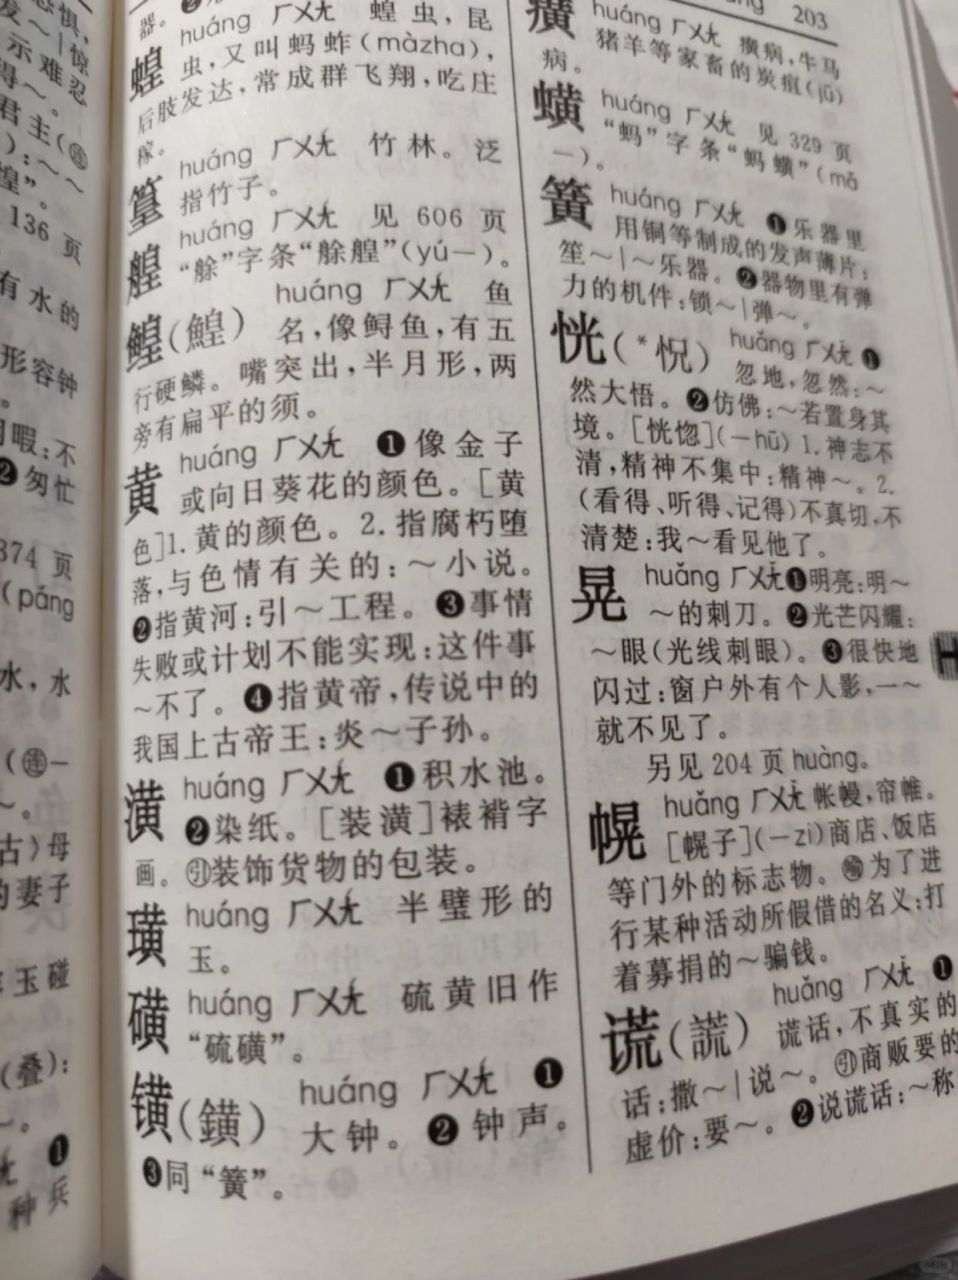 203
器。
蝗 huáng ㄏㄨㄤˊ 蝗虫,昆
虫,又叫蚂蚱(màzha),
后肢发达,常成群飞翔,吃庄
稼。
篁 huáng ㄏㄨㄤˊ 竹林。泛
指竹子。
艎 huáng ㄏㄨㄤˊ 见 606 页
“艅”字条“艅艎”(yú—)。
鳇(鰉) huáng ㄏㄨㄤˊ 鱼
名,像鲟鱼,有五
行硬鳞。嘴突出,半月形,两
旁有扁平的须。
黄 huáng ㄏㄨㄤˊ ❶像金子
或向日葵花的颜色。[黄
色]1.黄的颜色。2.指腐朽堕
落,与色情有关的:~小说。
❷指黄河:引~工程。❸事情
失败或计划不能实现:这件事
~不了。❹指黄帝,传说中的
我国上古帝王:炎~子孙。
潢 huáng ㄏㄨㄤˊ ❶积水池。
❷染纸。[装潢]裱褙字
画。㊋装饰货物的包装。
璜 huáng ㄏㄨㄤˊ 半璧形的
玉。
磺 huáng ㄏㄨㄤˊ 硫黄旧作
“硫磺”。
锁(鐄) huáng ㄏㄨㄤˊ ❶
大钟。❷钟声。
❸同“簧”。
癀 huáng ㄏㄨㄤˊ 癀病,牛马
猪羊等家畜的炭疽(jū)
病。
蟥 huáng ㄏㄨㄤˊ 见 329 页
“蚂”字条“蚂蟥”(mǎ
—)。
簧 huáng ㄏㄨㄤˊ ❶乐器里
用铜等制成的发声薄片:
笙~|~乐器。❷器物里有弹
力的机件:锁~|弹~。
恍(*怳) huǎng ㄏㄨㄤˇ ❶
忽地,忽然:~
然大悟。❷仿佛:~若置身其
境。[恍惚](—hū) 1.神志不
清,精神不集中:精神~。2.
(看得、听得、记得)不真切,不
清楚:我~看见他了。
晃 huǎng ㄏㄨㄤˇ❶明亮:明~
~的刺刀。❷光芒闪耀:
~眼(光线刺眼)。❸很快地
闪过:窗户外有个人影,一~
就不见了。
另见 204 页 huàng。
幌 huǎng ㄏㄨㄤˇ 帐幔,帘帷。
[幌子](—zi)商店、饭店
等门外的标志物。㊋为了进
行某种活动所假借的名义:打
着募捐的~骗钱。
谎(謊) huǎng ㄏㄨㄤˇ ❶
谎话,不真实的
话:撒~|说~。㊋商贩要的
虚价:要~。❷说谎话:~称
H